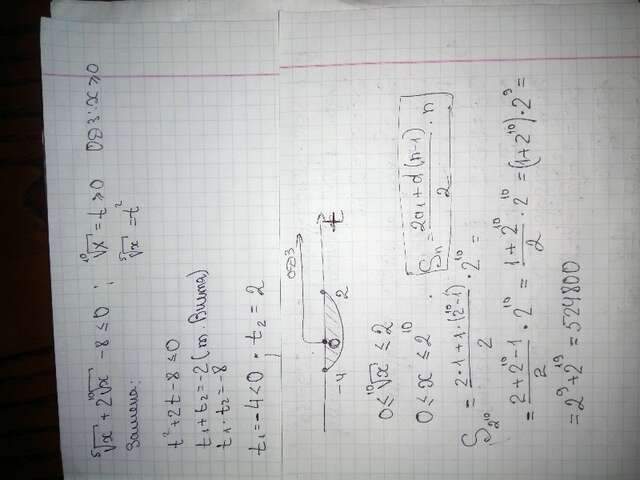 ⁵√x + 2 ¹⁰√x - 8 ≤ 0 ; ¹⁰√x = t ≥ 0 ОДЗ: x ≥ 0
Замена: ⁵√x = t²
t² + 2t - 8 ≤ 0
t₁ + t₂ = -2 (т. Виета)
t₁ · t₂ = -8
t₁ = -4 < 0 · t₂ = 2
ОДЗ
-4 0 2 t
0 ≤ ¹⁰√x ≤ 2
0 ≤ x ≤ 2¹⁰ . Sₙ = (2a₁ + d(n-1))/2 · n
S₂¹⁰ = (2·1 + 1·(2¹⁰-1))/2 · 2¹⁰ =
= (2 + 2¹⁰ - 1)/2 · 2¹⁰ = (1 + 2¹⁰)/2 · 2¹⁰ = (1 + 2¹⁰) · 2⁹ =
= 2⁹ + 2¹⁹ = 524800